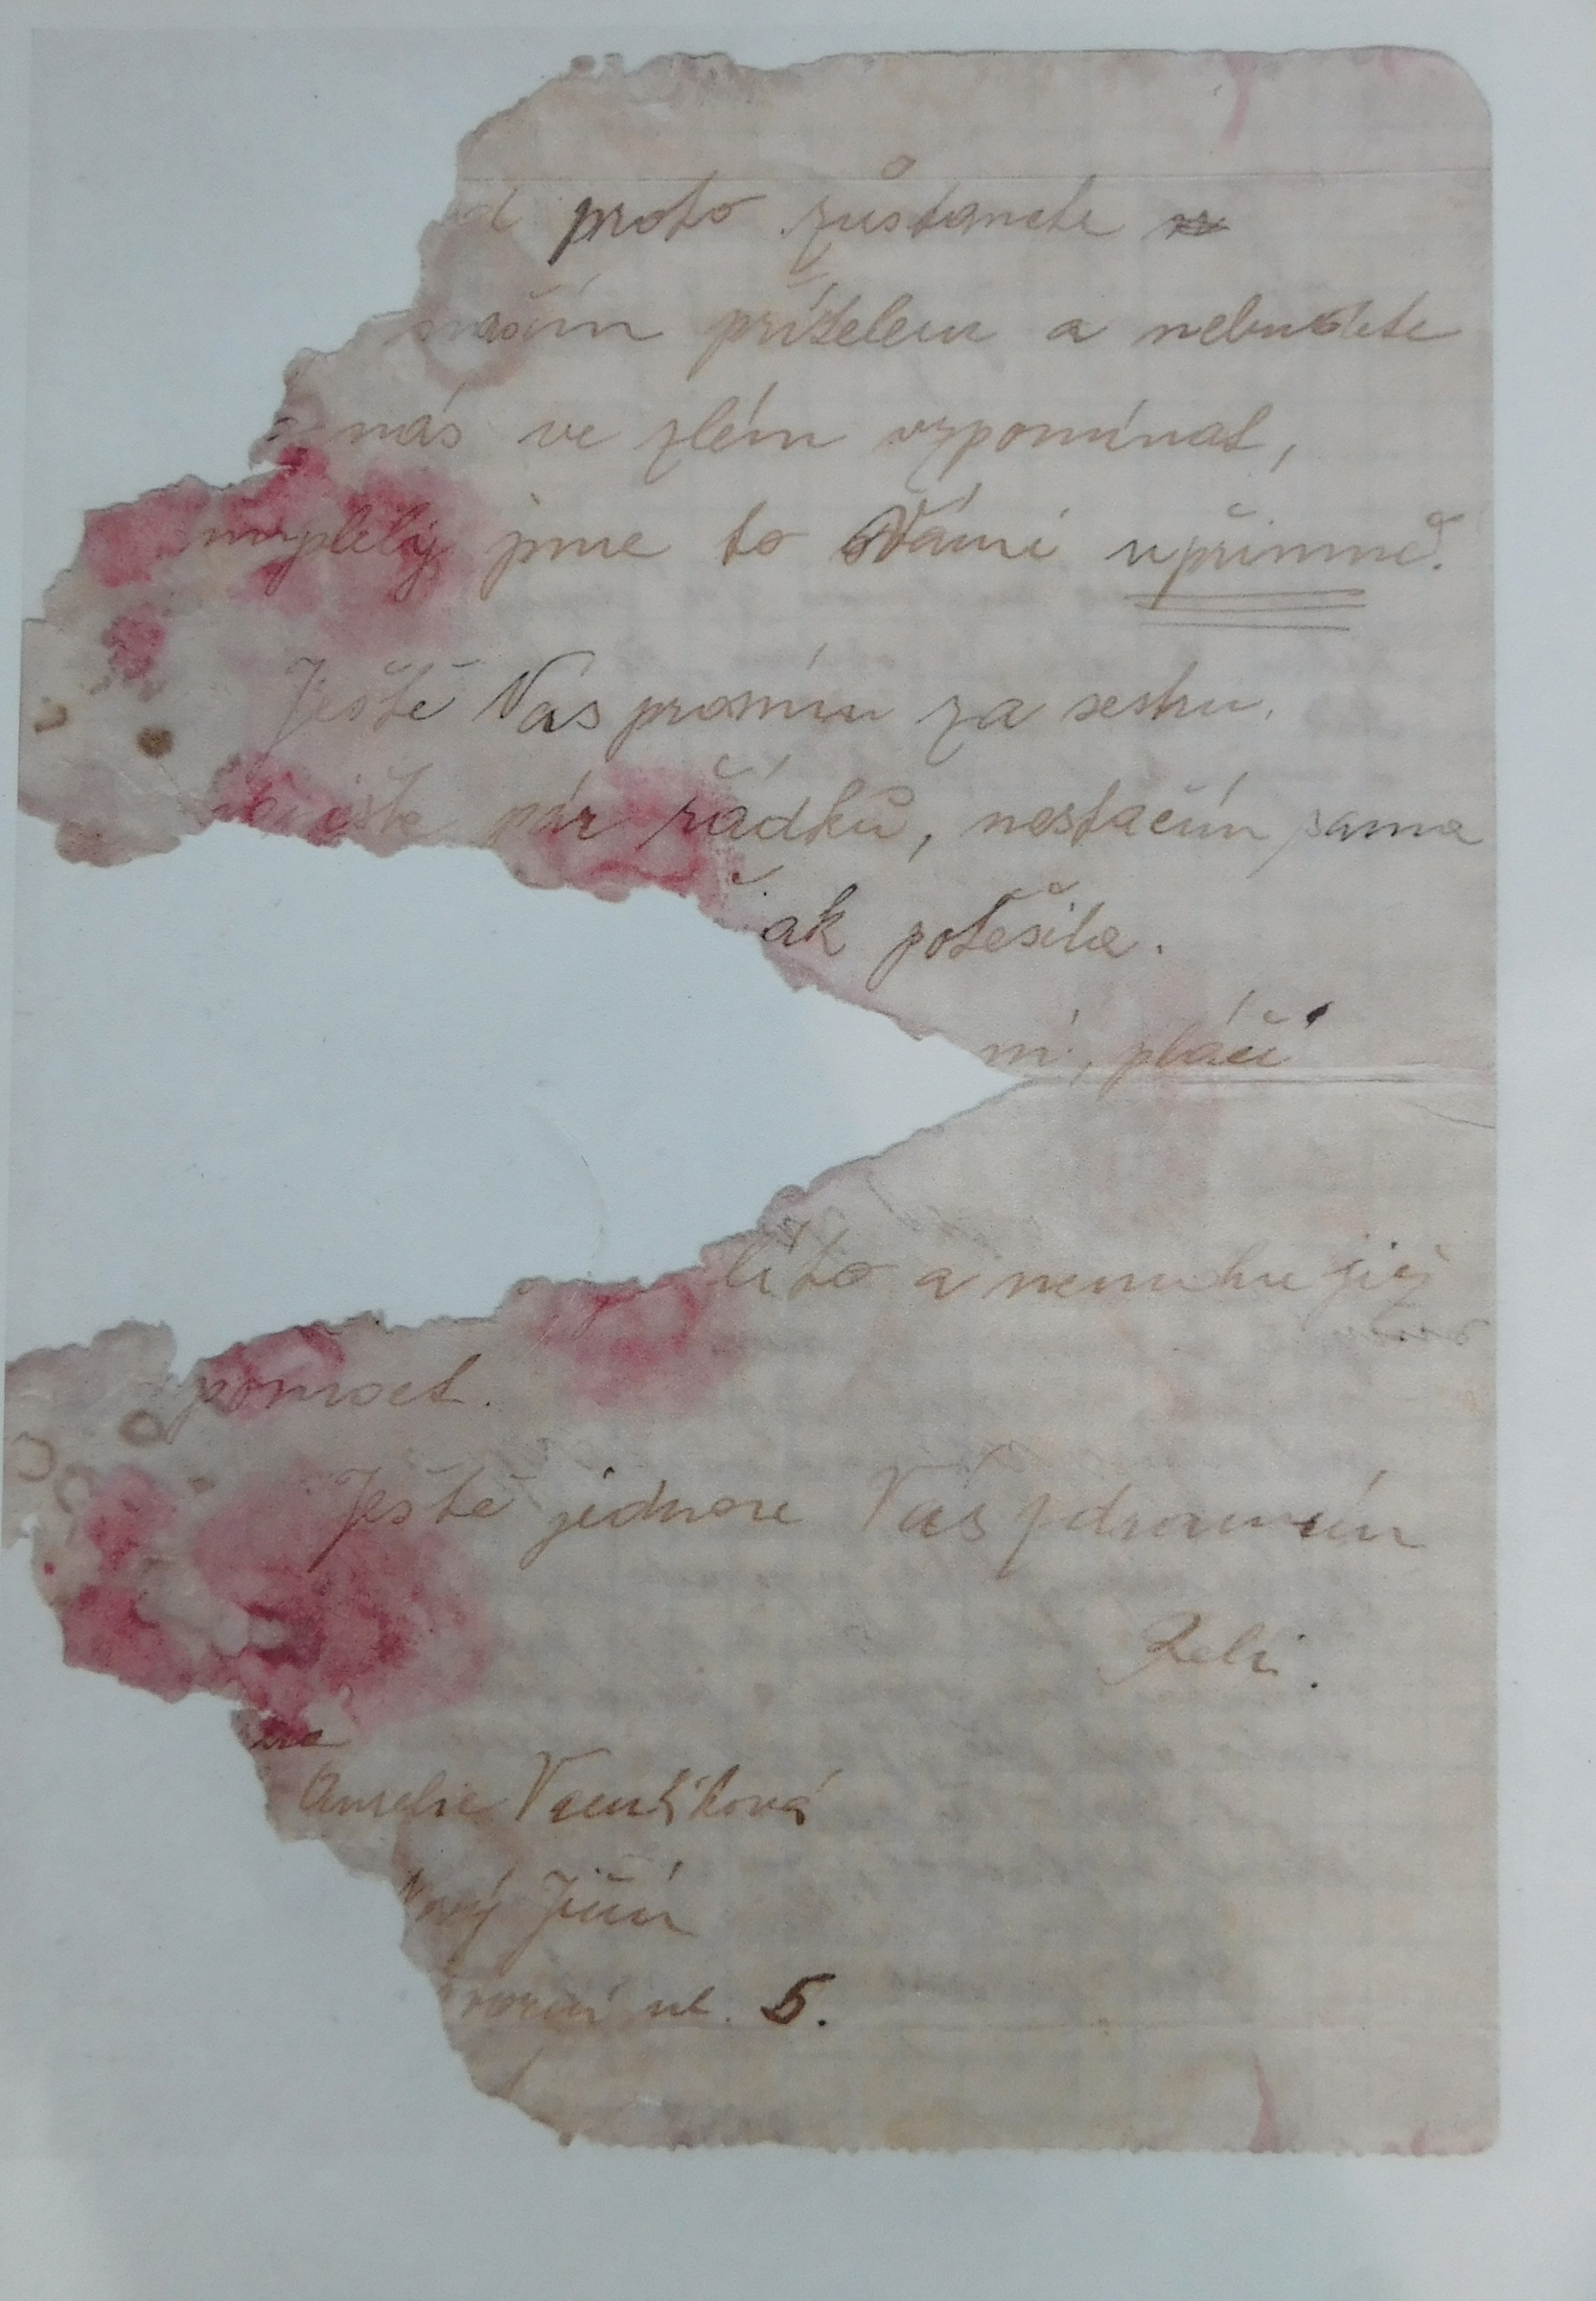 proto zůstanete
naším přítelem a nebudete
nás ve zlém vzpomínat,
jsme to Vámi upřímně.
Ještě Vás prosím za sestru.
pár řádků, nestačím sama
ak potěšila.
ní, pláči
líto a nemohu jej
pomoct.
Ještě jednou Vás zdravím
Reli.
Amelie
Nový Jičín
ul. 5.